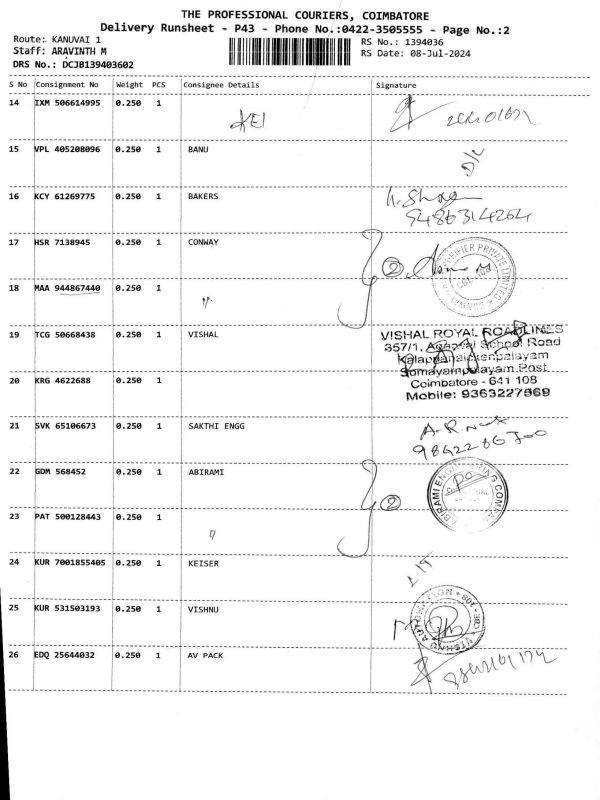 THE PROFESSIONAL COURIERS, COIMBATORE
Delivery Runsheet - P43 - Phone No.:0422-3505555 - Page No.:2
Route: KANUVAI 1
RS No.: 1394036
Staff: ARAVINTH M
RS Date: 08-Jul-2024
DRS No.: DCJB139403602
S No Consignment No Weight PCS Consignee Details Signature
14 IXM 506614995 0.250 1 KEI
15 VPL 405208096 0.250 1 BANU D/L
16 KCY 61269775 0.250 1 BAKERS
9486314264
17 HSR 7138945 0.250 1 CONWAY 2
18 MAA 944867440 0.250 1 "
19 TCG 50668438 0.250 1 VISHAL
VISHAL ROYAL ROADLINES
357/1, Agarwal School Road
Kalappanaickenpalayam
Somayampalayam Post
Coimbatore - 641 108
Mobile: 9363227569
20 KRG 4622688 0.250 1
21 SVK 65106673 0.250 1 SAKTHI ENGG
22 GDM 568452 0.250 1 ABIRAMI 2
23 PAT 500128443 0.250 1 "
24 KUR 7001855405 0.250 1 KEISER
25 KUR 531503193 0.250 1 VISHNU
26 EDQ 25644032 0.250 1 AV PACK